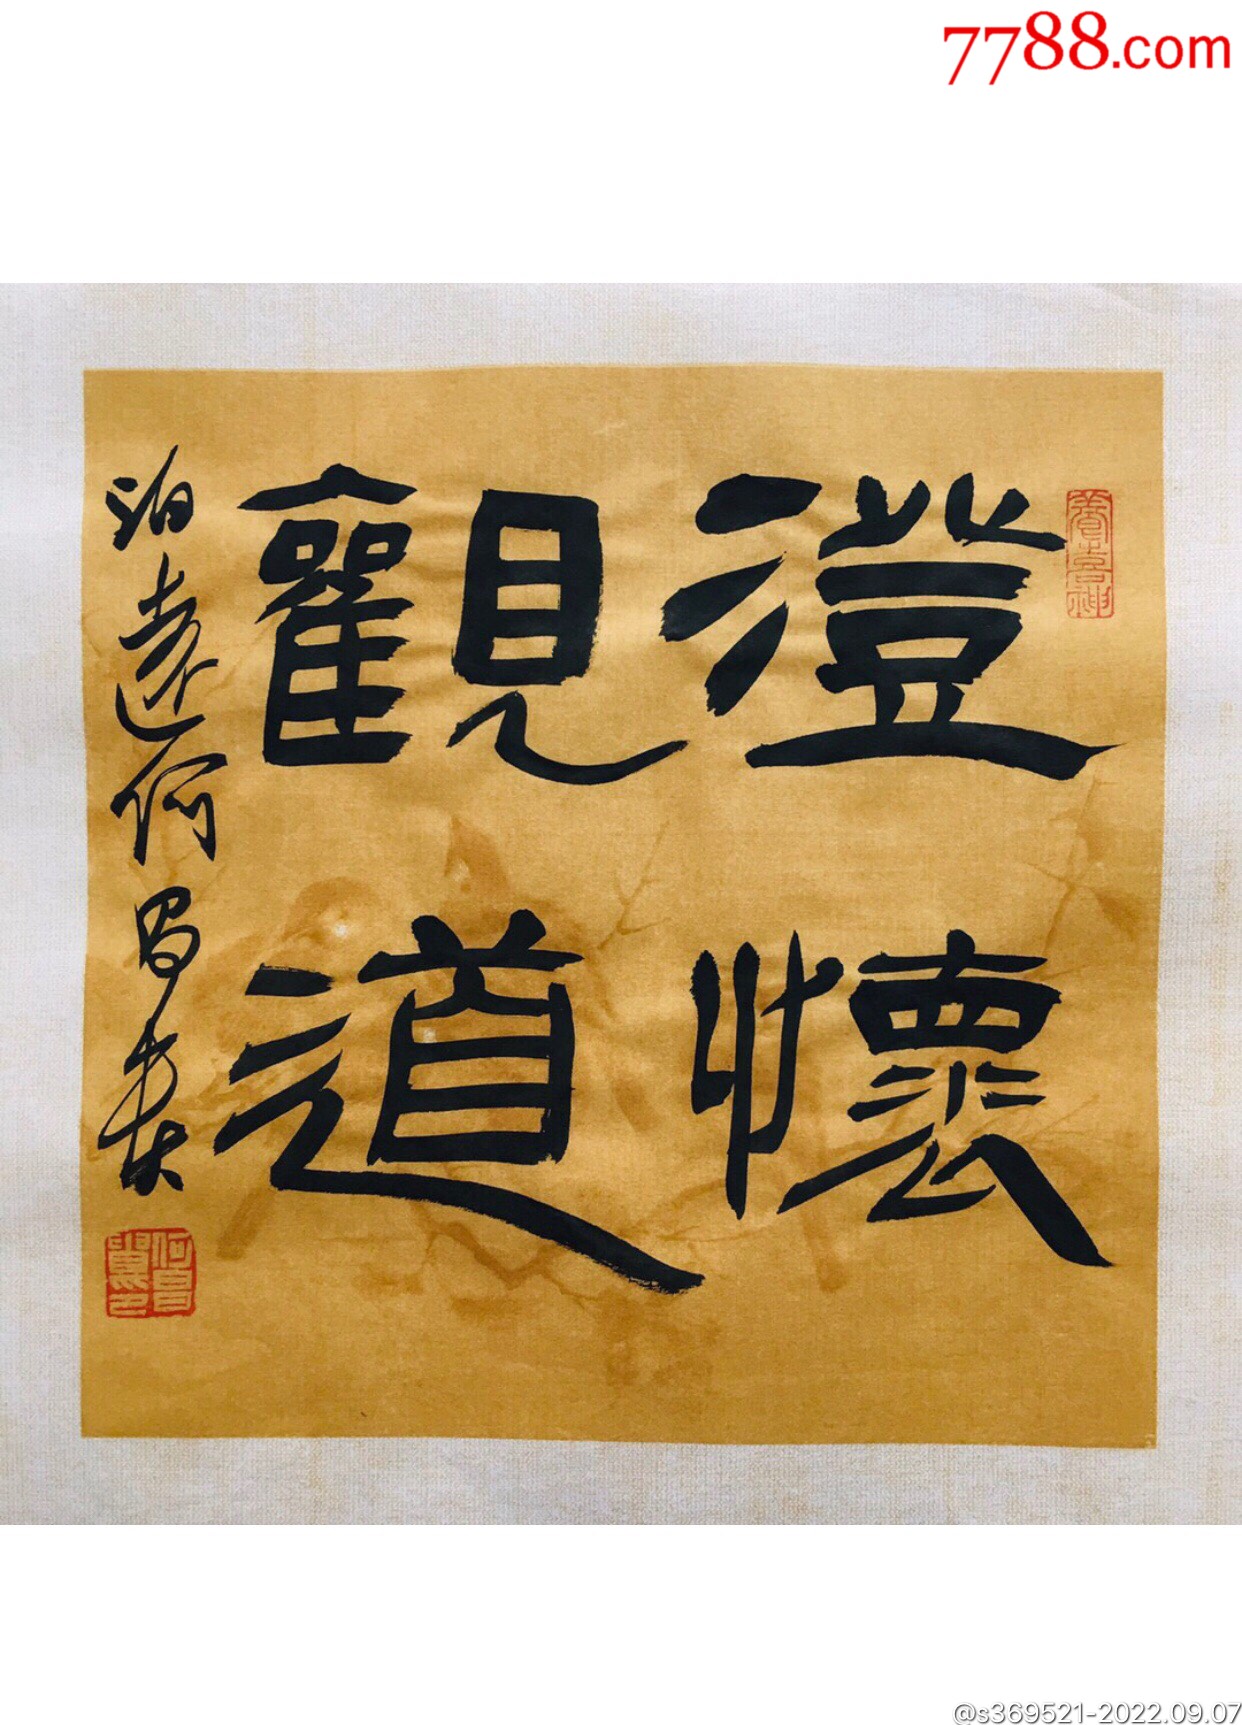 7788.com
澄懷
觀道
泊遠何昌貴
@s369521-2022.09.07